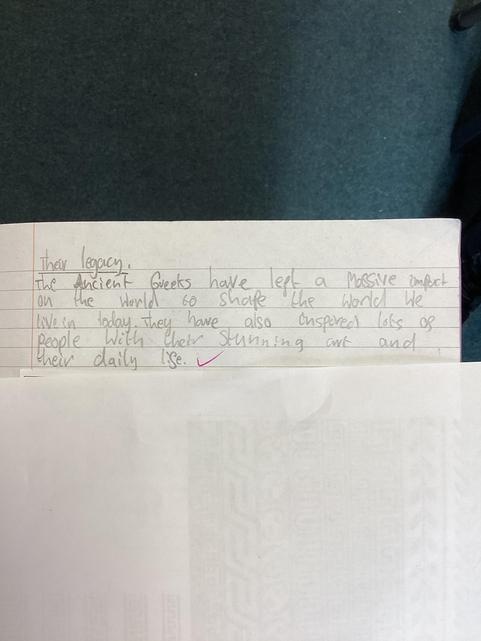 Their legacy.
The Ancient Greeks have left a Massive impact
on the world to shape the world we
live in today. They have also inspired lots of
people with their stunning art and
their daily life.